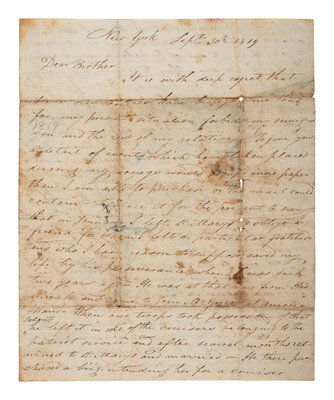 New York Septr 30th 1819
Dear Brother
It is with deep regret that
I am
for my present situation forbids my seeing
1819
you and the rest of my relatives. To give you
a detail of events which have taken place
during my voyage would require more paper
than I am able to purchase or the mail could
contain it for the present to say
that in I left St Marys without a
friend for whom I felt a particular gratitude
and who I have reason to suppose saved my
life by his perseverance when I was sick
two years ago He was at that time from
and to join at Amelia
Island When our troops took possession of that
Island
he left in one of the cruisers belonging to the
patriot service and after several months ret
urned to St Marys and married He there pur
chased a brig intending her for a cruiser